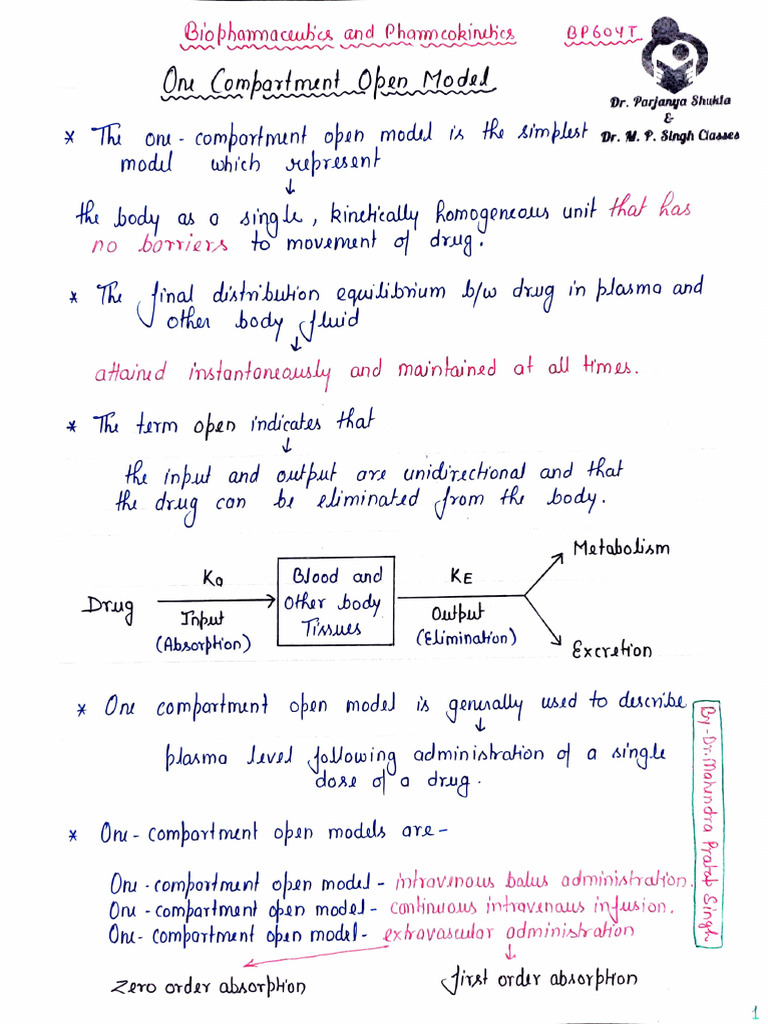 Biopharmaceutics and Pharmcokinetics BP604T
One Compartment Open Model
Dr. Parjanya Shukla
&
Dr. M. P. Singh Classes
* The one-compartment open model is the simplest
model which represent
↓
the body as a single, kinetically homogeneous unit that has
no barriers to movement of drug.
* The final distribution equilibrium b/w drug in plasma and
other body fluid
↓
attained instantaneously and maintained at all times.
* The term open indicates that
↓
the input and output are unidirectional and that
the drug can be eliminated from the body.
Drug
Ka
Input
(Absorption)
Blood and
Other body
Tissues
KE
Output
(Elimination)
Metabolism
Excretion
* One compartment open model is generally used to describe
↓
plasma level following administration of a single
dose of a drug.
* One-compartment open models are-
One-compartment open model - intravenous balus administration.
One-compartment open model - continuous intravenous infusion.
One-compartment open model - extravascular administration
Zero order absorption
First order absorption
By-Dr. Mahendra Pratap Singh
1